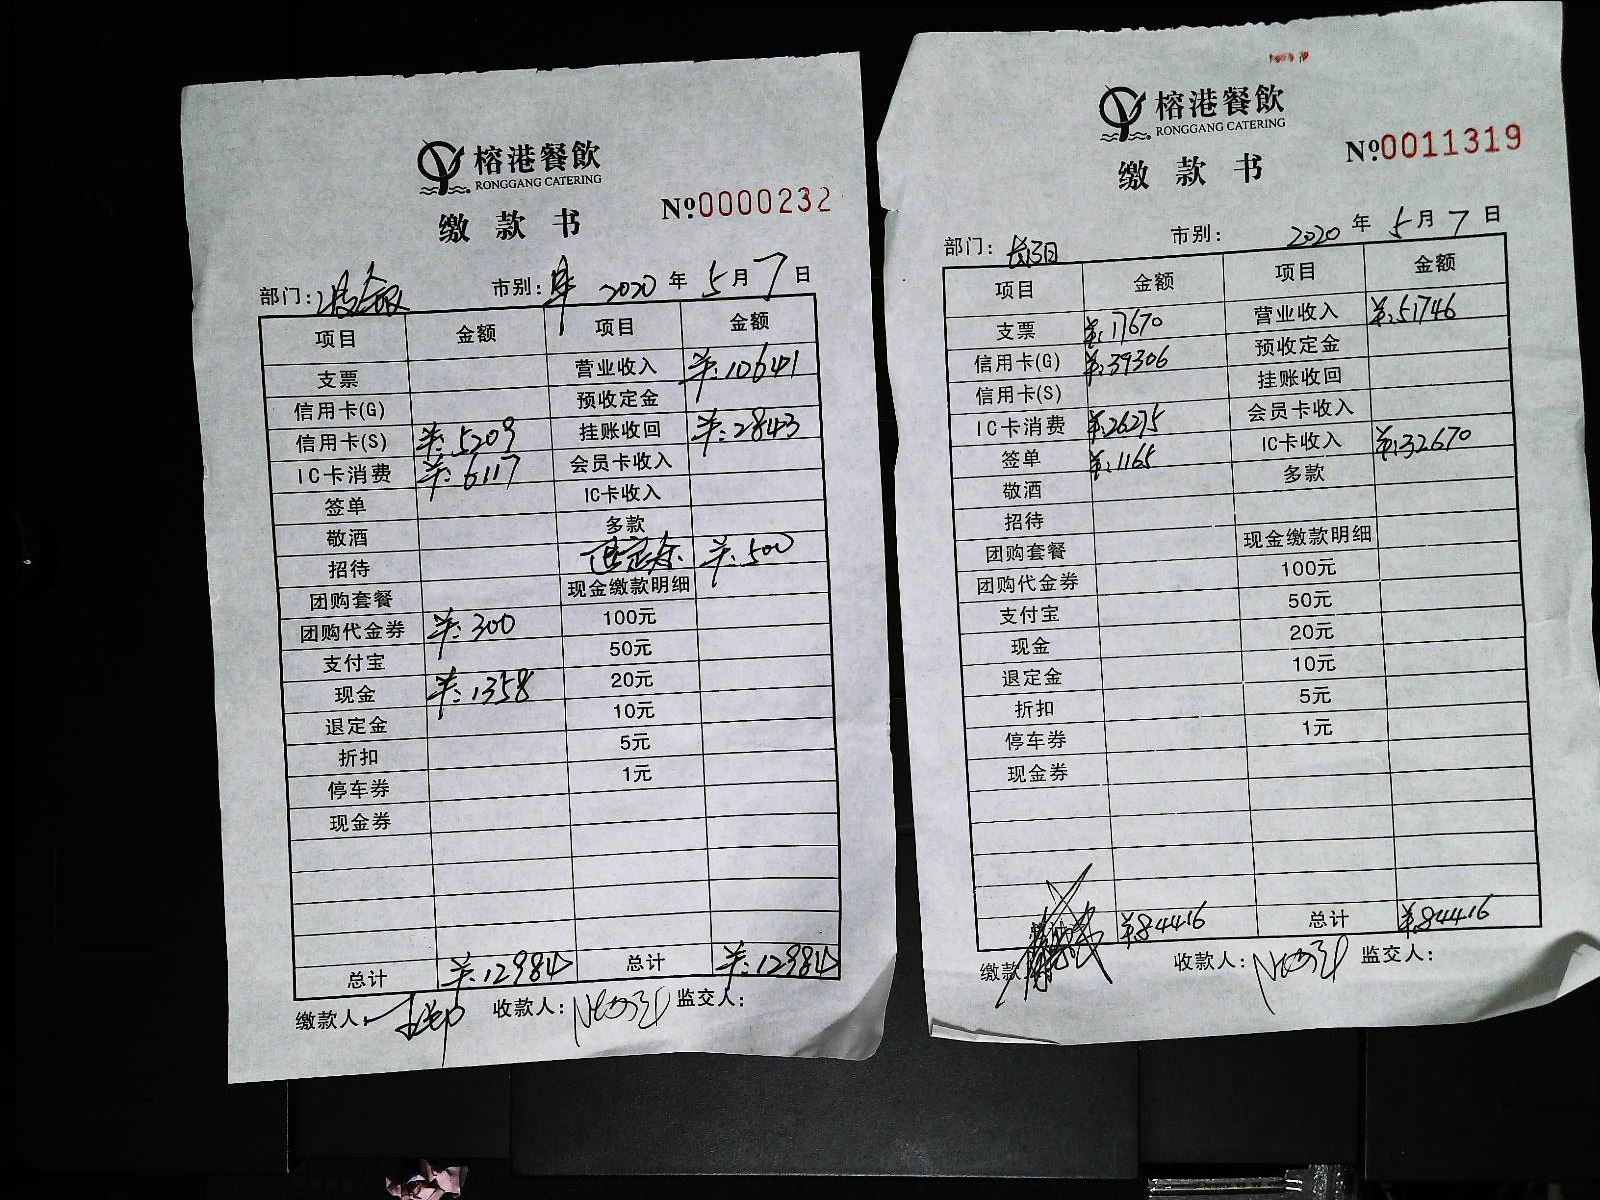 榕港餐飲
RONGGANG CATERING
缴款书
№0000232
部门: 市别: 2020年5月7日
项目 金额 项目 金额
支票 营业收入 ¥:10641
信用卡(G) 预收定金
信用卡(S) ¥:5209 挂账收回 ¥:2843
IC卡消费 ¥:6117 会员卡收入
签单 IC卡收入
敬酒 多款
招待 退定金 ¥:500
团购套餐 现金缴款明细
团购代金券 ¥:300 100元
支付宝 50元
现金 ¥:1358 20元
退定金 10元
折扣 5元
停车券 1元
现金券
总计 ¥:12984 总计 ¥:12984
缴款人: 收款人: 监交人:
榕港餐飲
RONGGANG CATERING
缴款书
№0011319
部门: 市别: 2020年5月7日
项目 金额 项目 金额
支票 ¥:17670 营业收入 ¥:51746
信用卡(G) ¥:39306 预收定金
信用卡(S) 挂账收回
IC卡消费 ¥:26275 会员卡收入
签单 ¥:1165 IC卡收入 ¥:32670
敬酒 多款
招待
团购套餐 现金缴款明细
团购代金券 100元
支付宝 50元
现金 20元
退定金 10元
折扣 5元
停车券 1元
现金券
¥84416 总计 ¥:84416
缴款 收款人: 监交人: